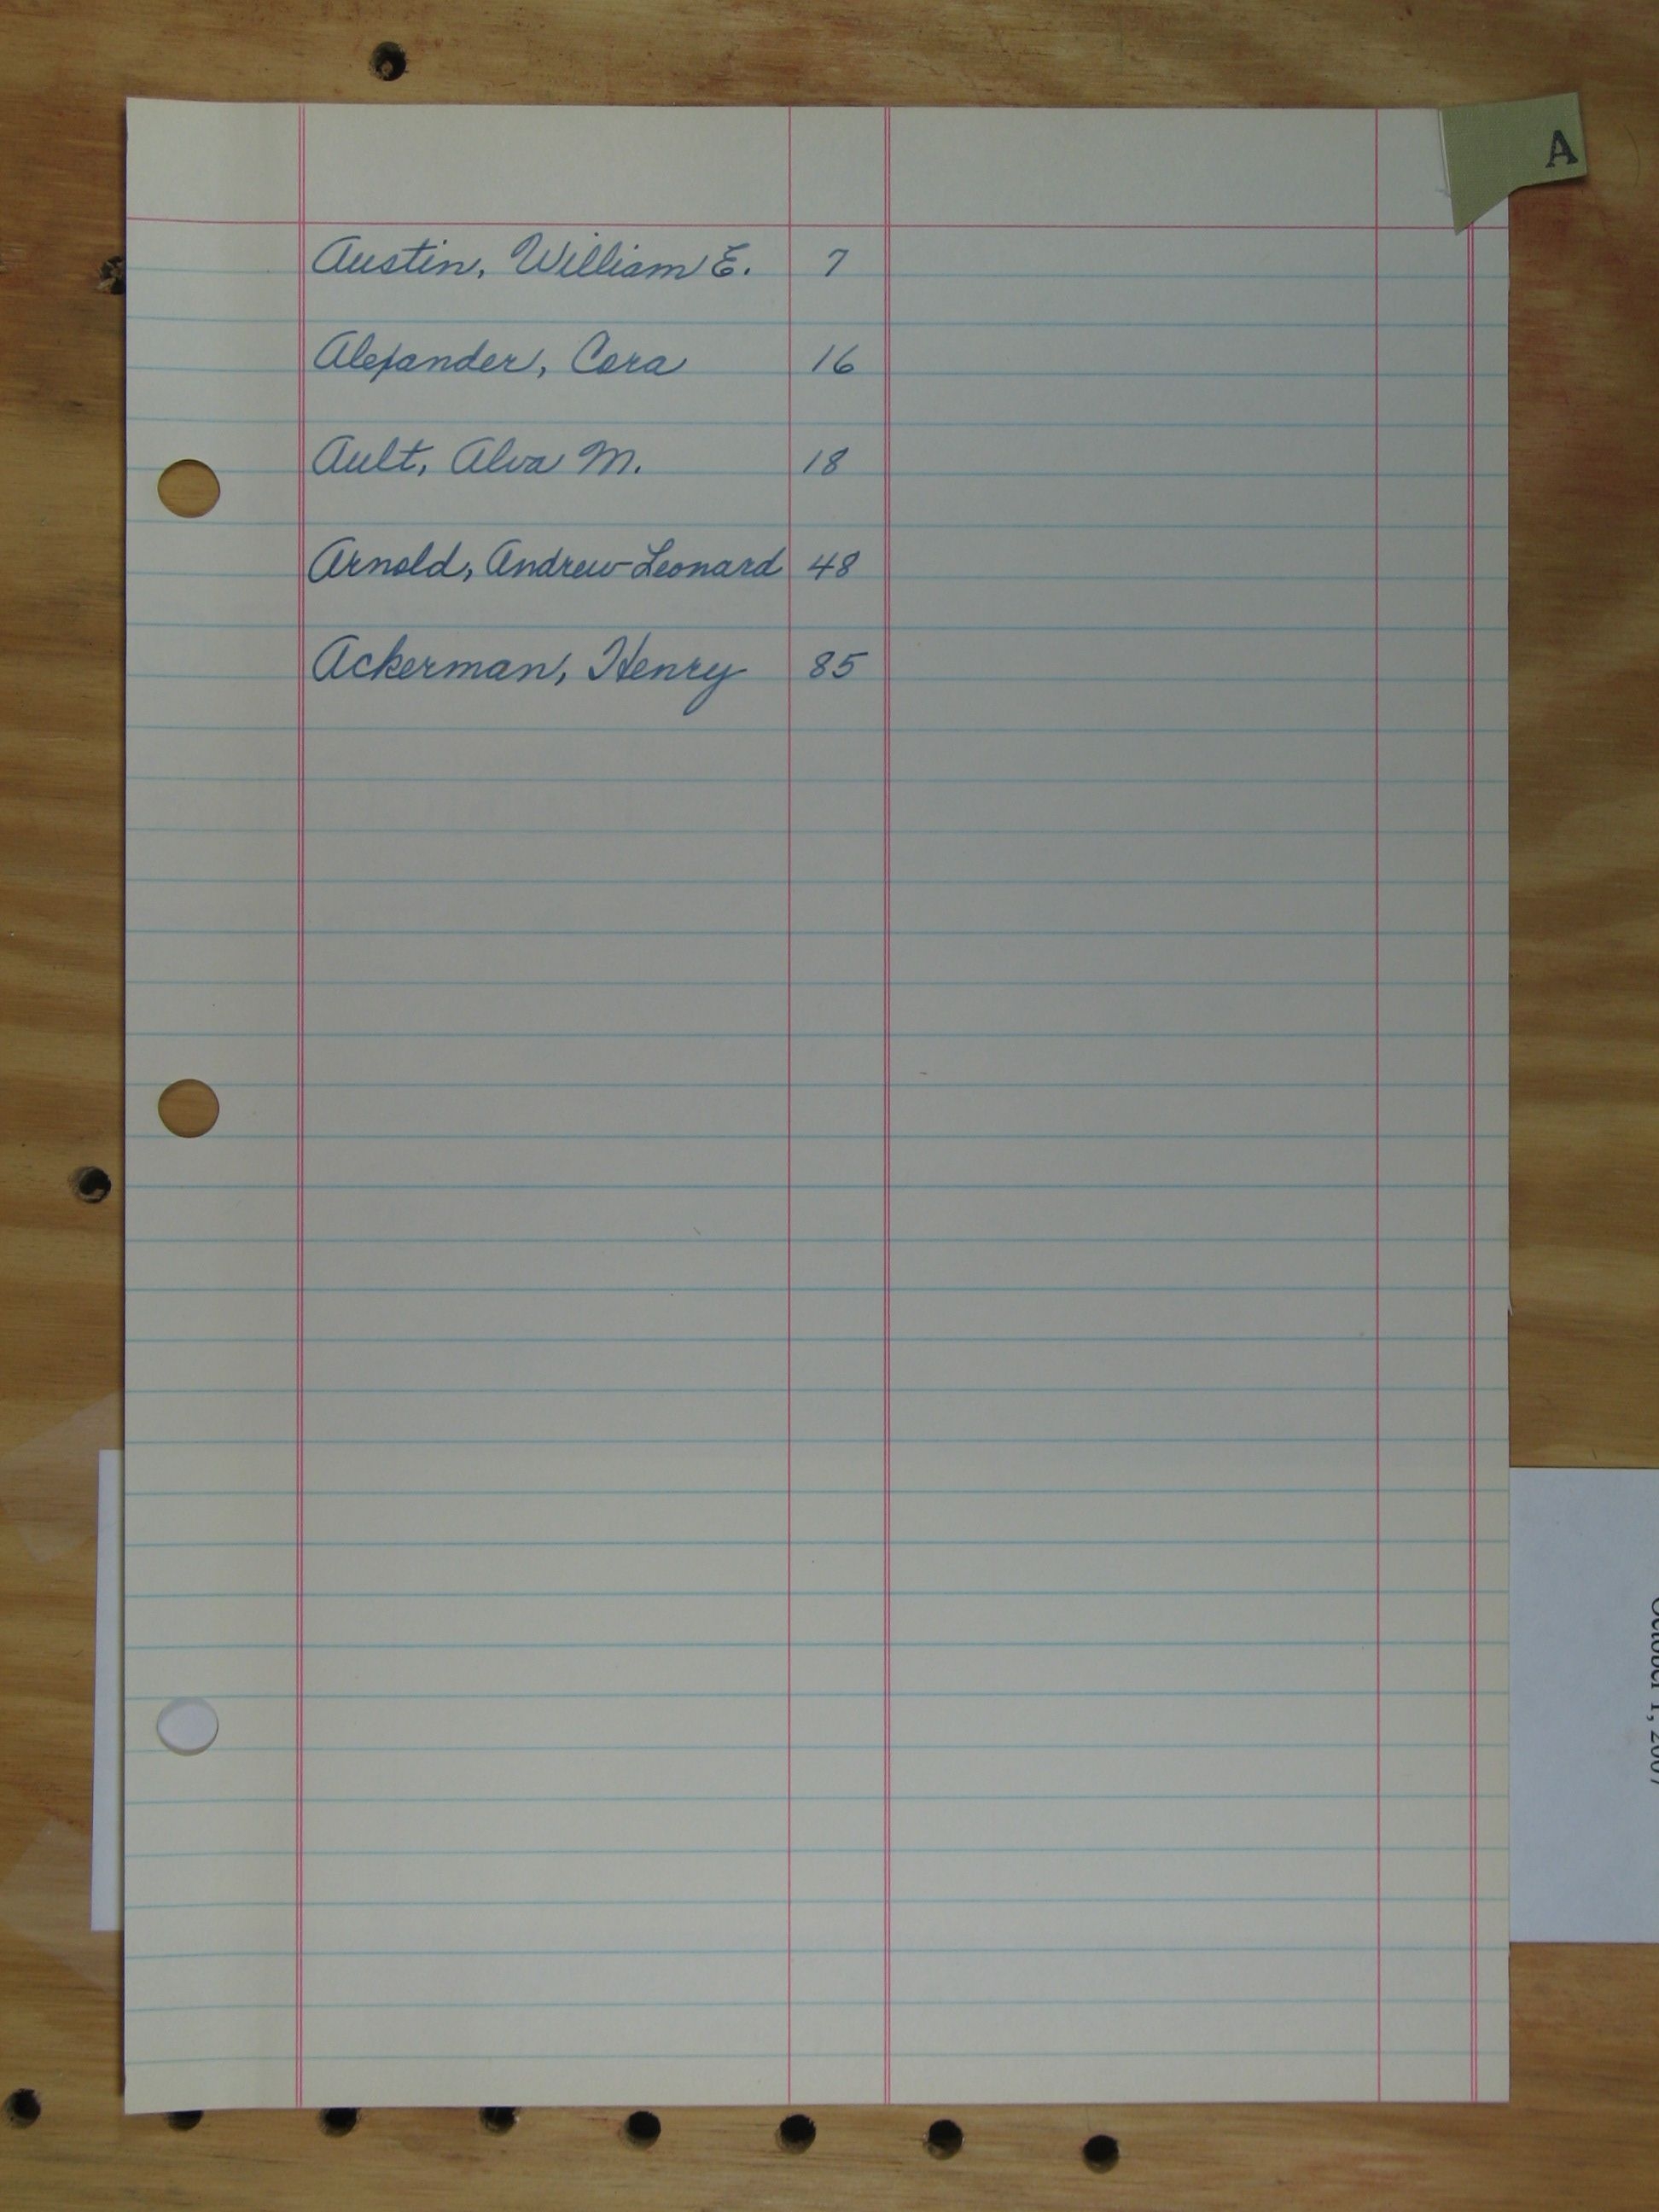 A
Austin, William E. 7
Alexander, Cora 16
Ault, Alva M. 18
Arnold, Andrew-Leonard 48
Ackerman, Henry 85
October 1, 2007